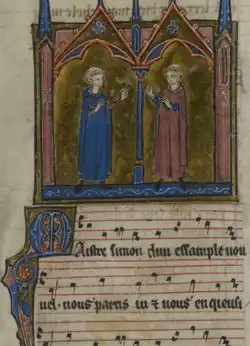 Maistre simon dun essample nou
uel. nous partis iu et nous en queisi